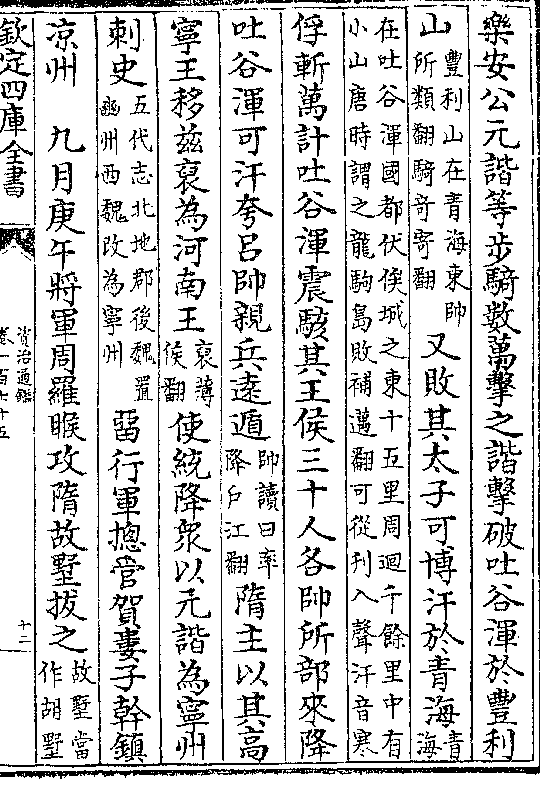 樂安公元諧等步騎數萬擊之諧擊破吐谷渾於豐利
山豐利山在青海東帥所類翻騎奇寄翻又敗其太子可博汗於青海青海
在吐谷渾國都伏俟城之東十五里周迴千餘里中有
小山唐時謂之龍駒島敗補邁翻可從刋入聲汗音寒
俘斬萬計吐谷渾震駭其王侯三十人各帥所部來降
吐谷渾可汗夸吕帥親兵遠遁帥讀曰率降户江翻隋主以其高
寧王移兹裒為河南王裒薄侯翻使統降衆以元諧為寧州
刺史五代志北地郡後魏置豳州西魏改為寧州畱行軍摠管賀婁子幹鎮
凉州 九月庚午將軍周羅㬋攻隋故墅拔之故墅當作胡墅
欽定四庫全書
資治通鑑
卷一百七十五
十二